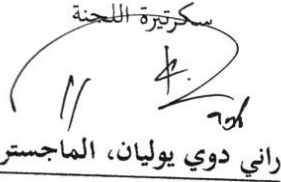 سكرتيرة اللجنة
راني دوي يوليان، الماجستر